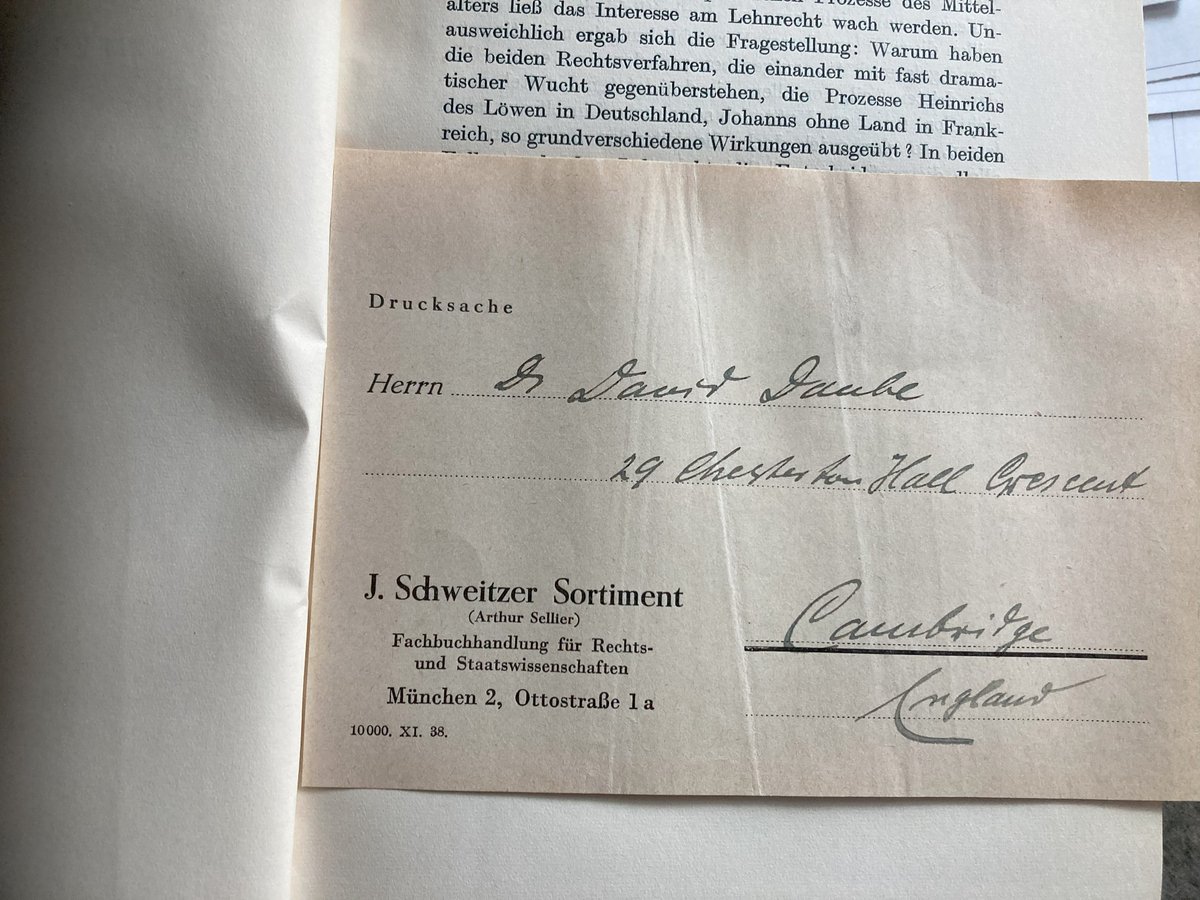 alters ließ das Interesse am Lehnrecht wach werden. Un-
ausweichlich ergab sich die Fragestellung: Warum haben
die beiden Rechtsverfahren, die einander mit fast drama-
tischer Wucht gegenüberstehen, die Prozesse Heinrichs
des Löwen in Deutschland, Johanns ohne Land in Frank-
reich, so grundverschiedene Wirkungen ausgeübt? In beiden
Drucksache
Herrn Dr David Daube
29 Chesterton Hall Crescent
J. Schweitzer Sortiment
(Arthur Sellier)
Fachbuchhandlung für Rechts-
und Staatswissenschaften
München 2, Ottostraße 1a
10000. XI. 38.
Cambridge
England